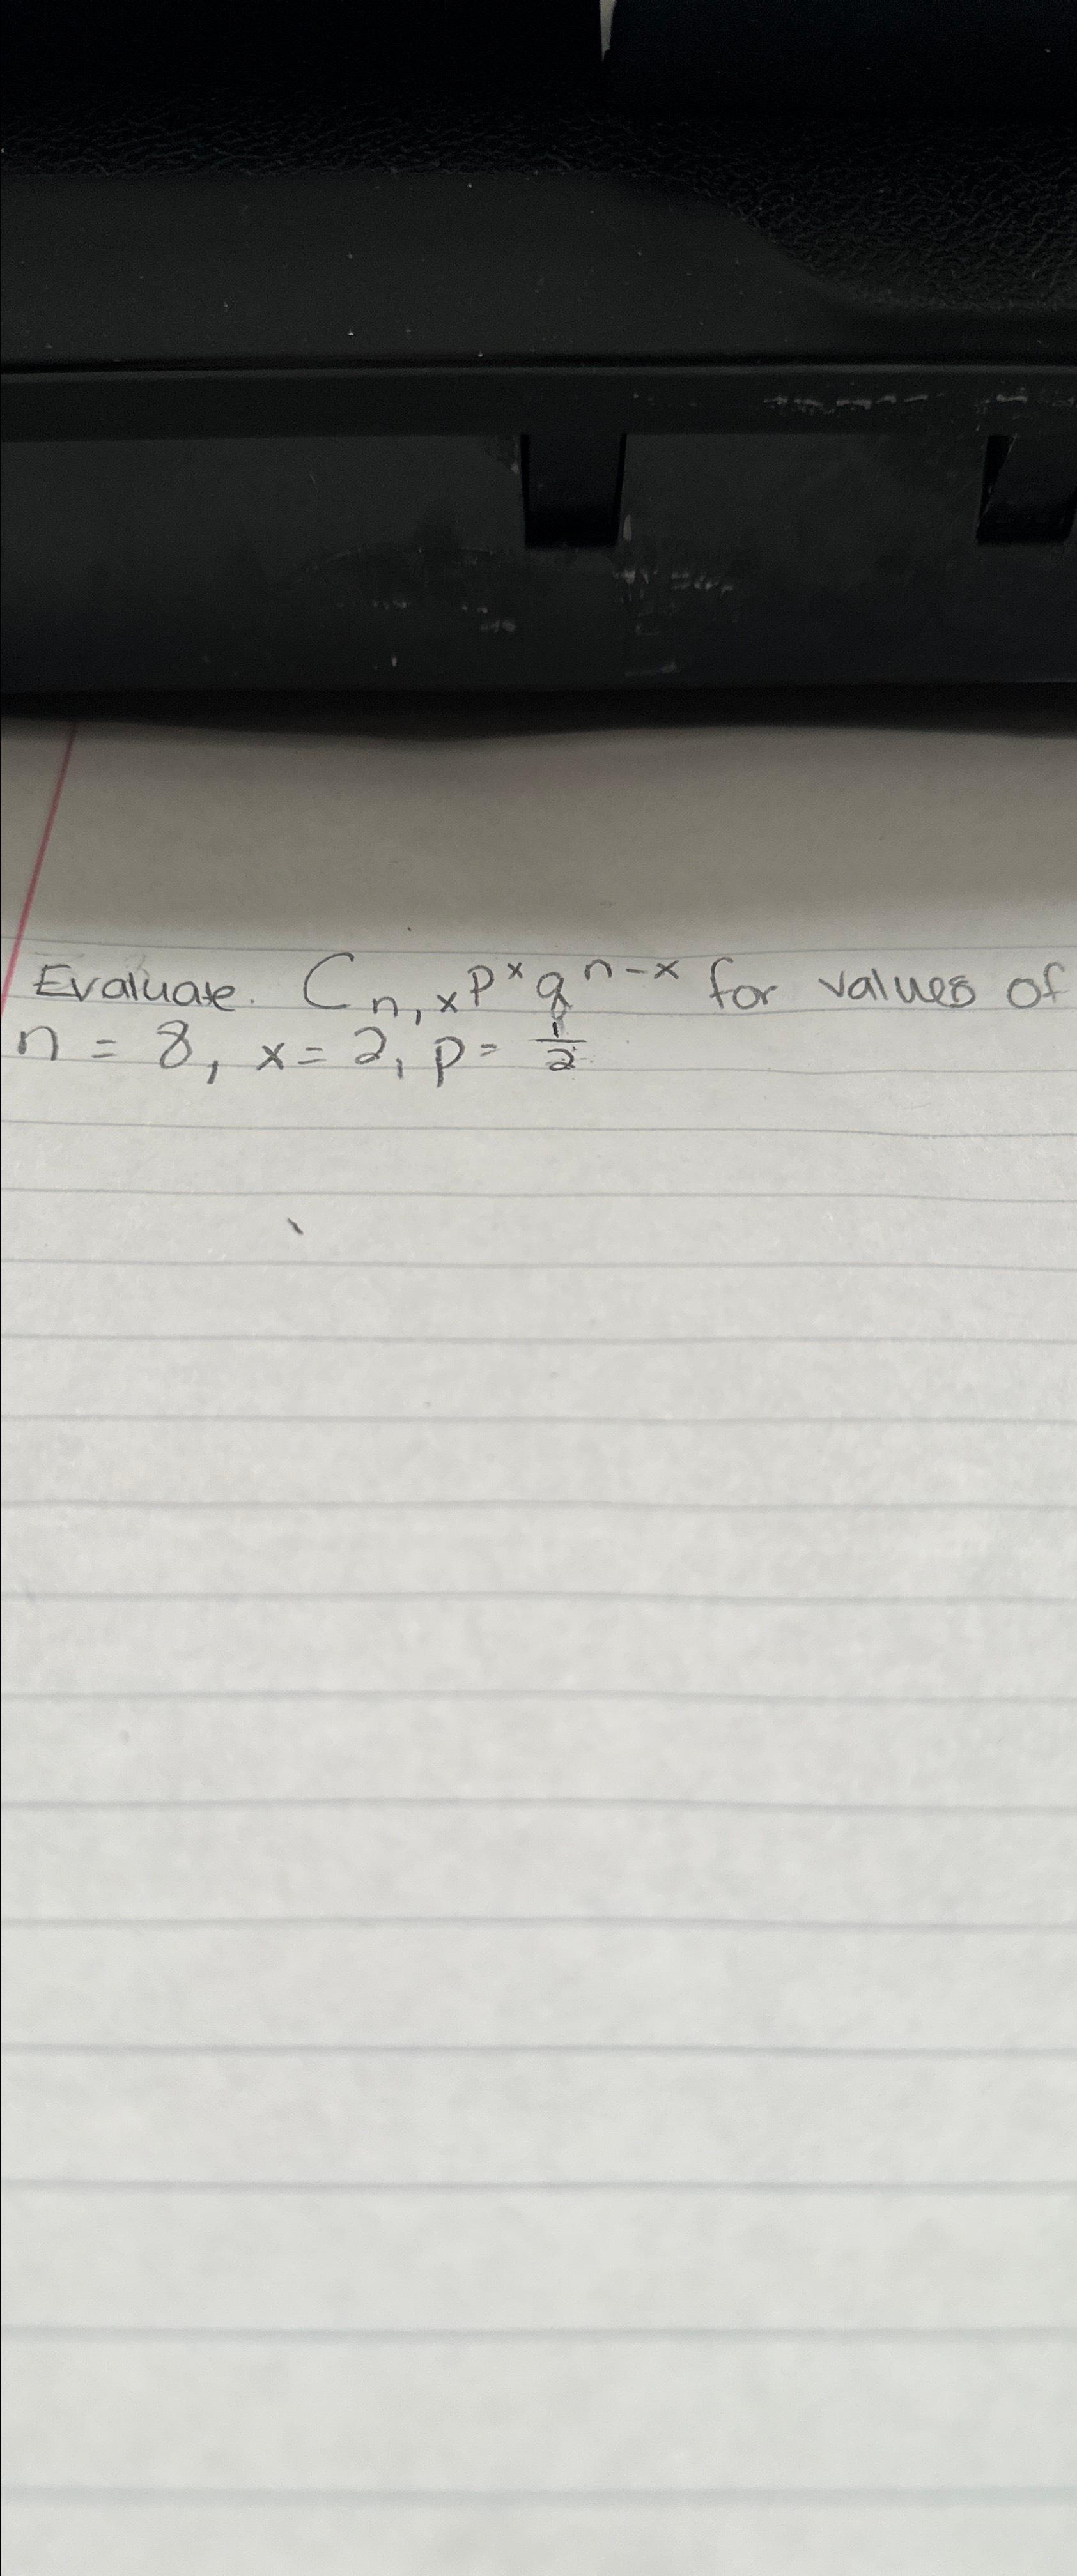 Evaluate. Cₙ,ₓ pˣ qⁿ⁻ˣ for values of
n = 8, x = 2, p = 1/2